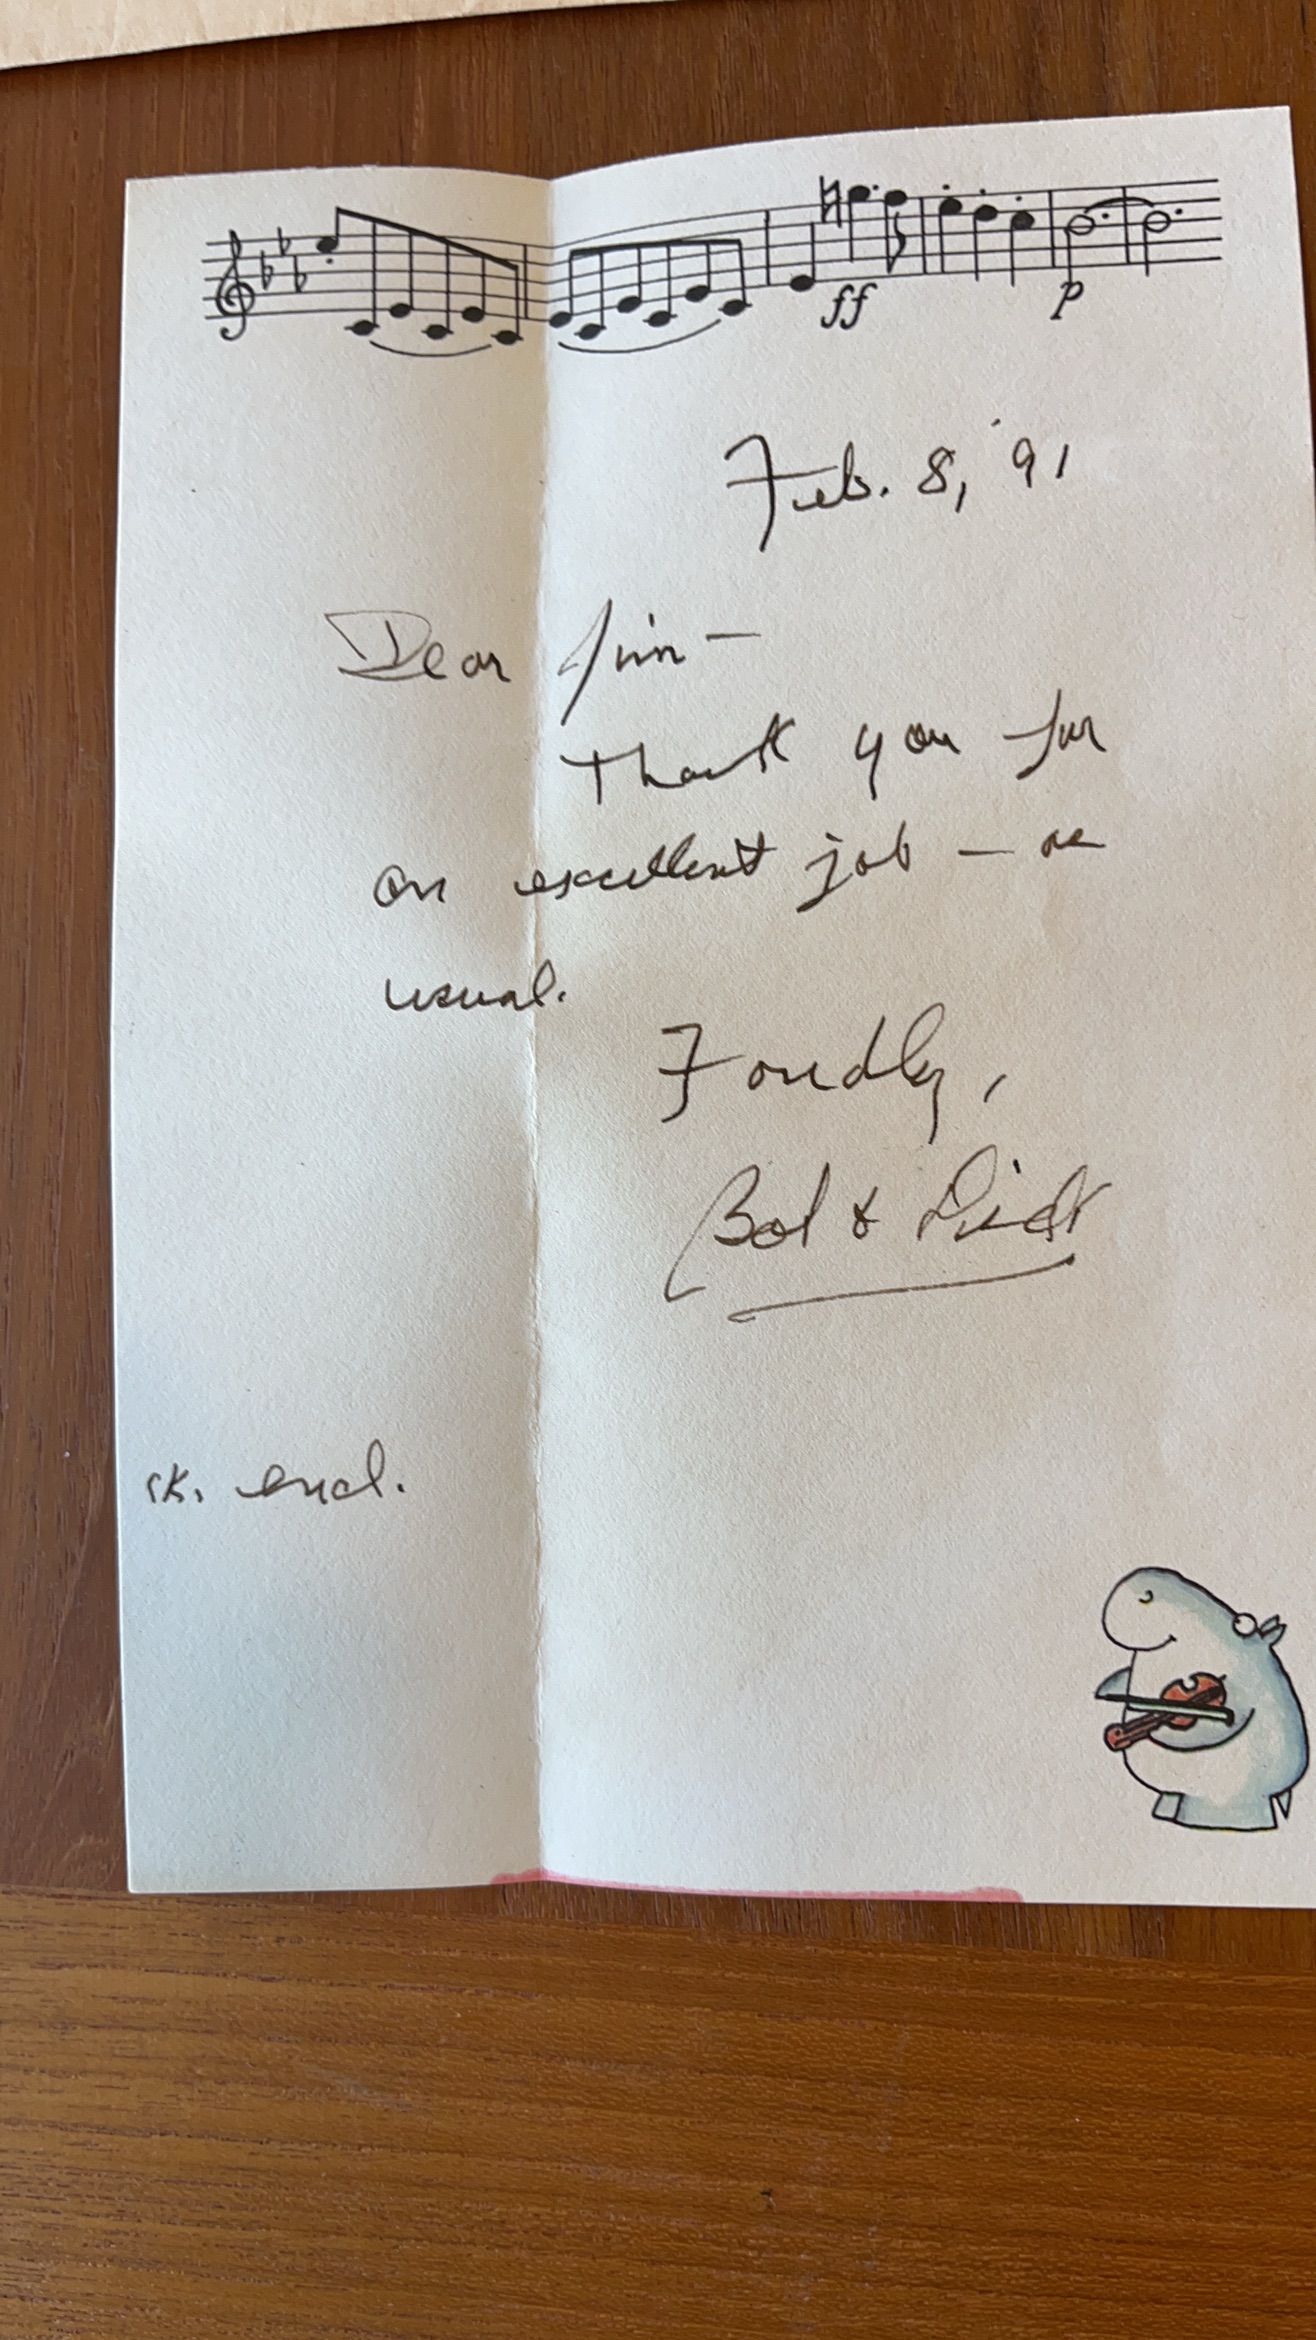 ff p
Feb. 8, '91
Dear Jim —
Thank you for
an excellent job — as
usual.
Fondly,
Bob & Dick
ck. encl.